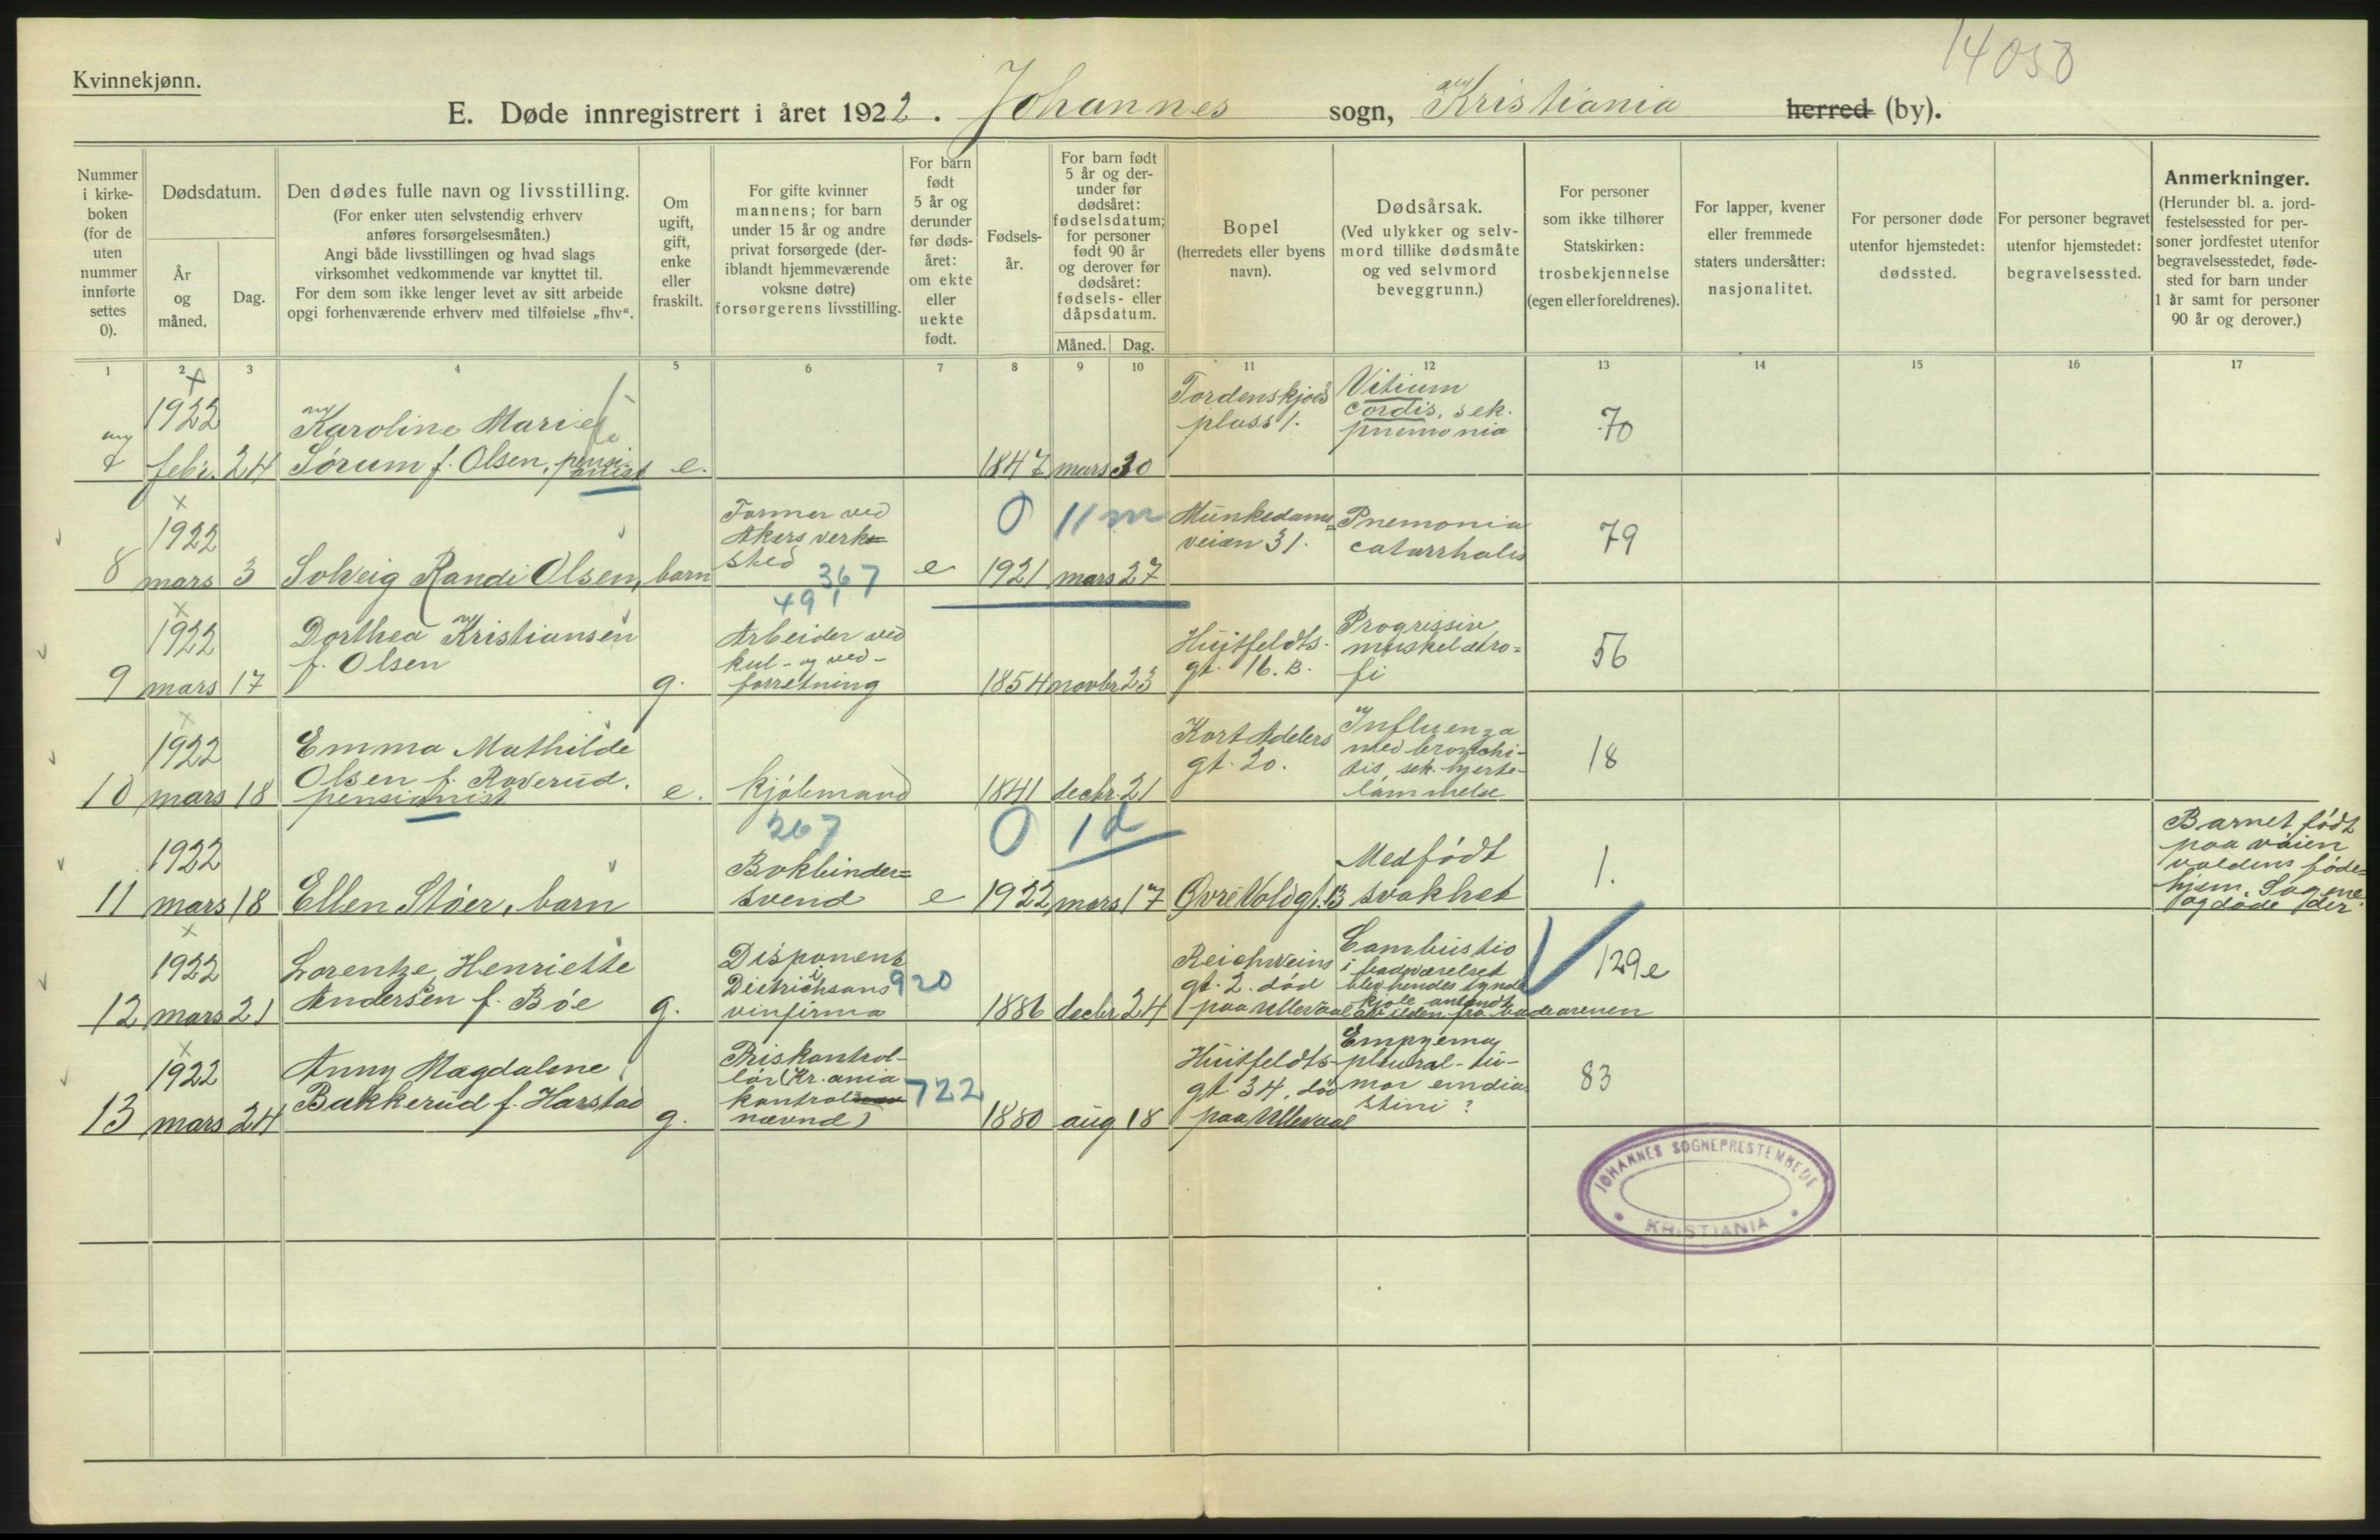 14050
Kvinnekjønn.
E. Døde innregistrert i året 1922. Johannes sogn, Kristiania herred (by).
Nummer
i kirke-
boken
(for de
uten
nummer
innførte
settes
0).
Dødsdatum.
År
og
måned.
Dag.
Den dødes fulle navn og livsstilling.
(For enker uten selvstendig erhverv
anføres forsørgelsesmåten.)
Angi både livsstillingen og hvad slags
virksomhet vedkommende var knyttet til.
For dem som ikke lenger levet av sitt arbeide
opgi forhenværende erhverv med tilføielse „fhv“.
Om
ugift,
gift,
enke
eller
fraskilt.
For gifte kvinner
mannens; for barn
under 15 år og andre
privat forsørgede (der-
iblandt hjemmeværende
voksne døtre)
forsørgerens livsstilling.
For barn
født
5 år og
derunder
før døds-
året:
om ekte
eller
uekte
født.
Fødsels-
år.
For barn født
5 år og der-
under før
dødsåret:
fødselsdatum;
for personer
født 90 år
og derover før
dødsåret:
fødsels- eller
dåpsdatum.
Måned. Dag.
Bopel
(herredets eller byens
navn).
Dødsårsak.
(Ved ulykker og selv-
mord tillike dødsmåte
og ved selvmord
beveggrunn.)
For personer
som ikke tilhører
Statskirken:
trosbekjennelse
(egen eller foreldrenes).
For lapper, kvener
eller fremmede
staters undersåtter:
nasjonalitet.
For personer døde
utenfor hjemstedet:
dødssted.
For personer begravet
utenfor hjemstedet:
begravelsessted.
Anmerkninger.
(Herunder bl. a. jord-
festelsessted for per-
soner jordfestet utenfor
begravelsesstedet, føde-
sted for barn under
1 år samt for personer
90 år og derover.)
1 2 3 4 5 6 7 8 9 10 11 12 13 14 15 16 17
1922
febr. 24
Karoline Marie
Sørum f. Olsen, pensi-
onist
e.
1847 mars 30
Tordenskjolds
plass 1.
Vitium
cordis, sek.
pnemonia
70
8
1922
mars 3
Solveig Randi Olsen, barn
Former ved
Akers verk=
sted
367
491
e
0 11 m
1921 mars 27
Munkedams=
veien 31.
Pnemonia
catarrhalis
79
9
1922
mars 17
Dorthea Kristiansen
f. Olsen
g.
Arbeider ved
kul- og ved-
forretning
1854 novbr 23
Huitfeldts-
gt. 16. B.
Progressiv
muskelatro=
fi
56
10
1922
mars 18
Emma Mathilde
Olsen f. Roverud.
pensionist
e.
Kjøbmand
1841 decbr. 21
Kort Adelers
gt. 20.
Influenza
med bronchi-
tis, sek. hjerte-
lammelse
18
11
1922
mars 18
Ellen Støer, barn
267
Bokbinder=
svend
e
0 1 d
1922 mars 17
Øvre Voldgt. 13
Medfødt
svakhet
1.
Barnet født
paa
føde=
hjem, Sagene
og døde der
12
1922
mars 21
Lorentze Henriette
Andersen f. Bøe
g.
Disponent
i
vinfirma
920
1886 decbr 24
Reichweins
gt. 2. død
paa Ullevaal
Combustio
i badeværelset
blev hendes tynde
kjole antændt
av ilden fra badeovnen
129e
13
1922
mars 24
Anny Magdalene
Bakkerud f. Harstad
g.
Priskontrol-
lør (Kr.ania
kontrol
nævnd)
722
1880 aug 18
Huitfeldts-
gt. 34, død
paa Ullevaal
Empyema
pleural-tu-
mor
stini?
83
JOHANNES SOGNEPRESTEMBEDE
KRISTIANIA